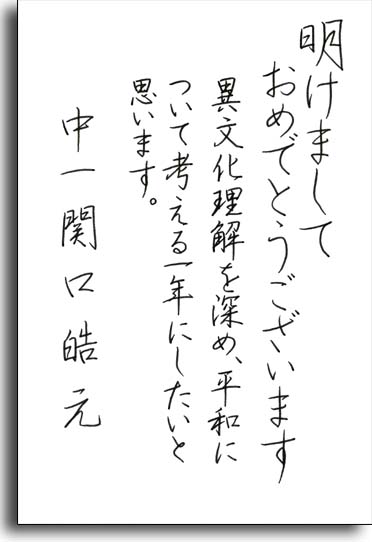 明けまして
おめでとうございます
異文化理解を深め、平和に
ついて考える一年にしたいと
思います。
中一関口皓元